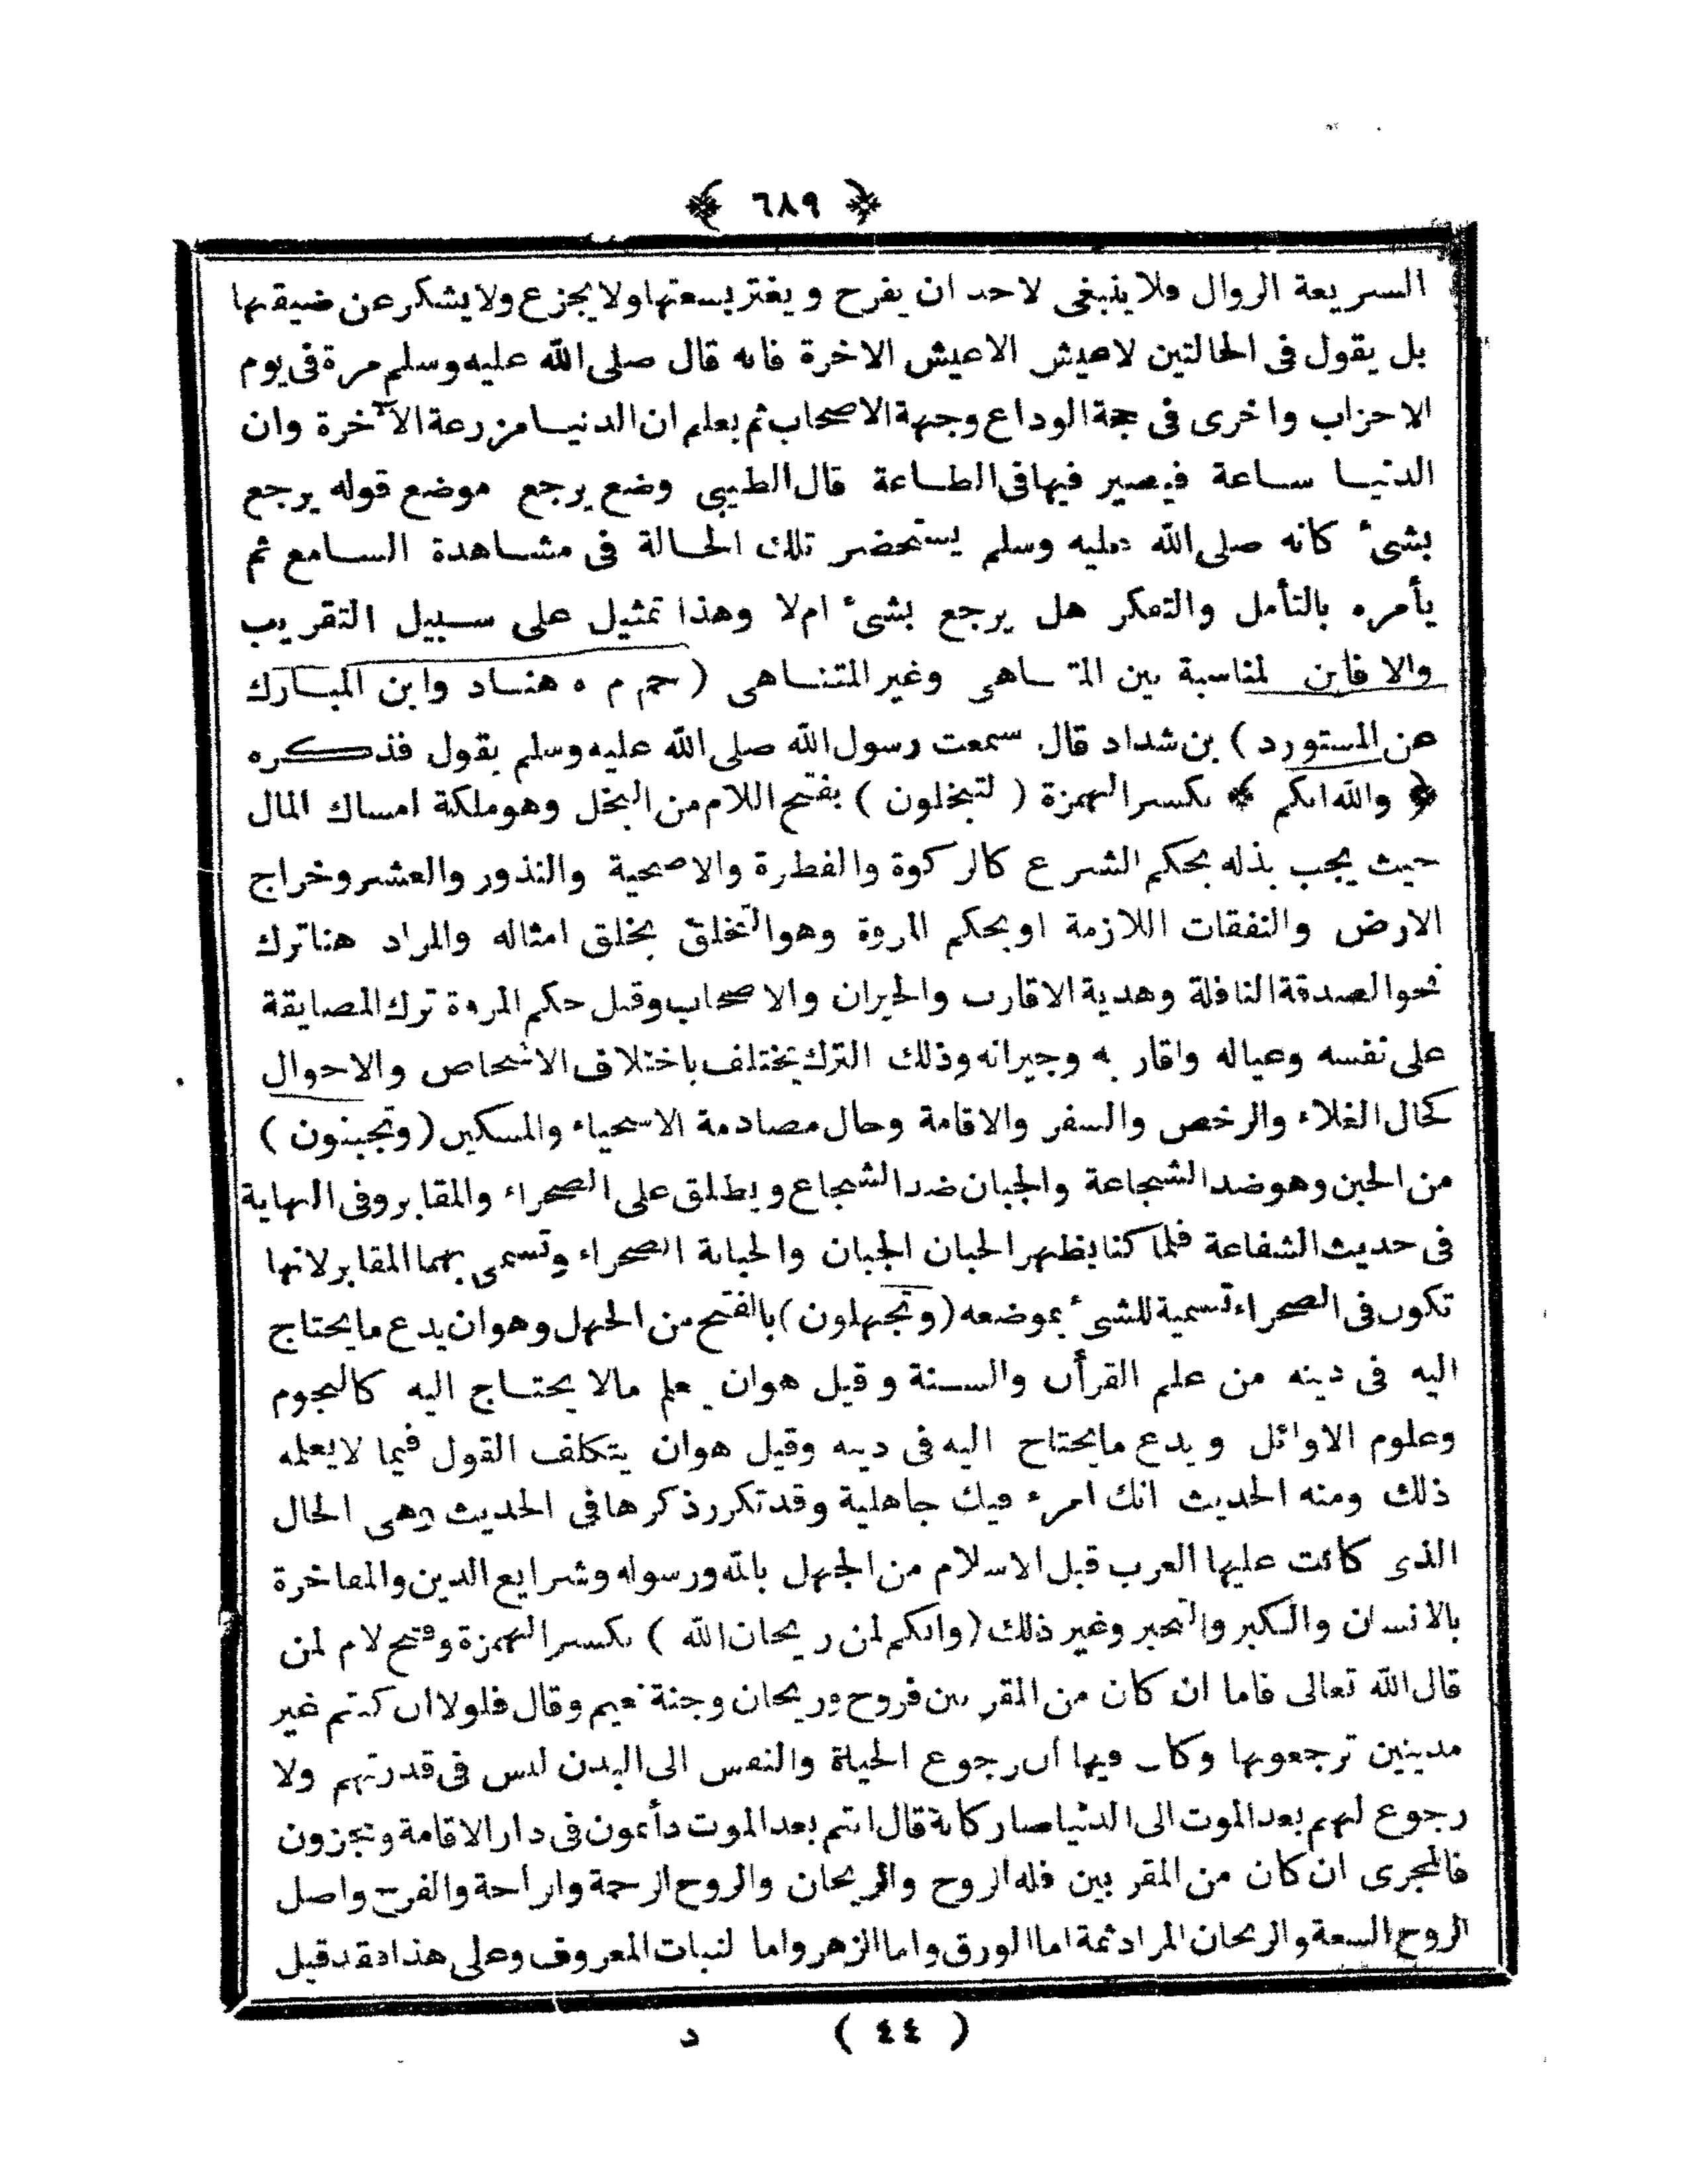 ﴿ ٦٨٩ ﴾
السريعة الزوال فلا ينبغى لاحد ان يفرح ويغتر بسعتها ولا يجزع ولا يشكر عن ضيقها
بل يقول فى الحالتين لاعيش الاعيش الاخرة فانه قال صلى الله عليه وسلم مرة فى يوم
الاحزاب واخرى فى حجة الوداع وجهة الاصحاب ثم يعلم ان الدنيا مزرعة الآخرة وان
الدنيا ساعة فيصير فيها فى الطاعة قال الطيبى وضع يرجع موضع قوله يرجع
بشئ كانه صلى الله عليه وسلم يستحضر تلك الحالة فى مشاهدة السامع ثم
يأمره بالتأمل والتفكر هل يرجع بشئ ام لا وهذا تمثيل على سبيل التقريب
والا فاين لمناسبة بين المتناهى وغير المتناهى ( حم م ه هناد وابن المبارك
عن المستورد ) بن شداد قال سمعت رسول الله صلى الله عليه وسلم يقول فذكره
﴿ والله انكم ﴾ بكسر الهمزة ( لتبخلون ) بفتح اللام من البخل وهو ملكة امساك المال
حيث يجب بذله بحكم الشرع كالزكوة والفطرة والاضحية والنذور والعشر وخراج
الارض والنفقات اللازمة او بحكم المروة وهو التخلق بخلق امثاله والمراد هنا ترك
نحو الصدقة النافلة وهدية الاقارب والجيران والاصحاب وقيل حكم المروة ترك المضايقة
على نفسه وعياله واقاربه وجيرانه وذلك الترك يختلف باختلاف الاشخاص والاحوال
كحال الغلاء والرخص والسفر والاقامة وحال مصادمة الاسخياء والمسكين ( وتجبنون )
من الجبن وهو ضد الشجاعة والجبان ضد الشجاع ويطلق على الصحراء والمقابر وفى النهاية
فى حديث الشفاعة فلما كنا بظهر الجبان الجبان والجبانة الصحراء وتسمى بهما المقابر لانها
تكون فى الصحراء تسمية للشئ بموضعه ( وتجهلون ) بالفتح من الجهل وهو ان يدع ما يحتاج
اليه فى دينه من علم القرأن والسنة وقيل هو ان يعلم مالا يحتاج اليه كالنجوم
وعلوم الاوائل ويدع ما يحتاج اليه فى دينه وقيل هو ان يتكلف القول فيما لا يعلمه
ذلك ومنه الحديث انك امرء فيك جاهلية وقد تكرر ذكرها فى الحديث وهى الحال
الذى كانت عليها العرب قبل الاسلام من الجهل بالله ورسوله وشرايع الدين والمفاخرة
بالانسان والكبر والتجبر وغير ذلك ( وانكم لمن ريحان الله ) بكسر الهمزة وفتح لام لمن
قال الله تعالى فاما ان كان من المقربين فروح وريحان وجنة نعيم وقال فلولا ان كنتم غير
مدينين ترجعونها وكان فيها ان رجوع الحياة والنفس الى البدن ليس فى قدرتهم ولا
رجوع لهم بعد الموت الى الدنيا صار كانه قال انتم بعد الموت دأئمون فى دار الاقامة وتجزون
فالمجزى ان كان من المقربين فله الروح والريحان والروح الرحمة والراحة والفرح واصل
الروح السعة والريحان المراد ثمة اما الورق واما الزهر واما لنبات المعروف وعلى هذا فقد قيل
( ٤٤ ) د